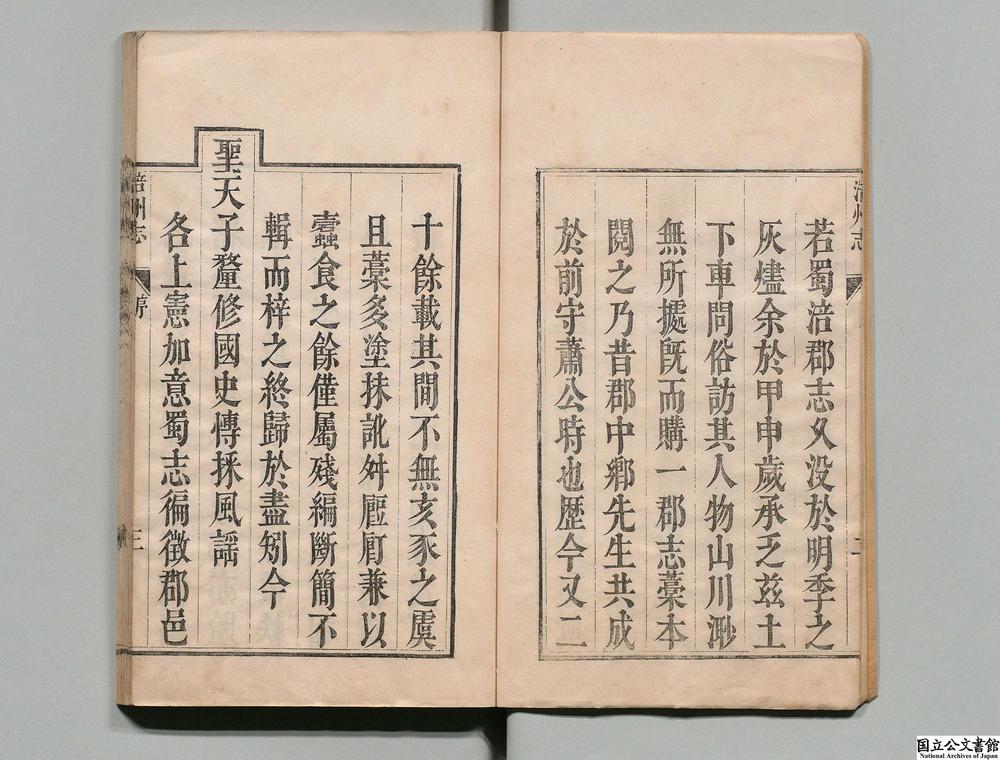 若蜀涪郡志久没於明季之
灰燼余於甲申歲承乏兹土
下車問俗訪其人物山川渺
無所據旣而購一郡志藁本
閱之乃昔郡中鄕先生共成
於前守蕭公時也歷今又二
十餘載其間不無亥豕之虞
且藁多塗抹訛舛兼以
蠹食之餘僅屬殘編斷簡不
輯而梓之終歸於盡矧今
聖天子釐修國史慱採風謡
各上憲加意蜀志徧徵郡邑
涪州志
二
涪州志
序
三
国立公文書館
National Archives of Japan